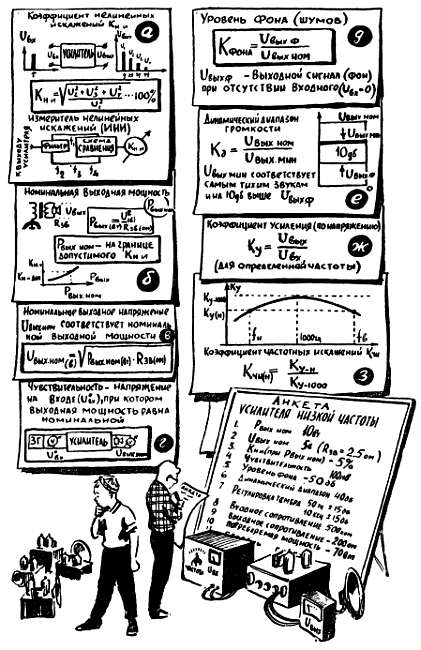 Коэффициент нелинейных
искажений Kн и
Uвх
Uвых
Усилитель
а
Kни = √ U₂² + U₃² + U₄² ... / U₁² 100%
Измеритель нелинейных
искажений (ИНИ)
К выходу
усилителя
Фильтр
схема
сравнения
Kни
f₁
f₂ f₃ f₄
Номинальная выходная мощность
Rзв
Uвых
Pвых(вт) = U²(в) / Rзв(ом)
Pвых ном
Pвых ном — на границе
допустимого Kни
Kни
Kн доп
Pвых
Pвых ном
б
Номинальное выходное напряжение
Uвых ном соответствует номиналь
ной выходной мощности
в
Uвых.ном(в) = √ Pвых.ном(вт) · Rзв(ом)
Чувствительность — напряжение
на входе (Uвх), при котором
выходная мощность равна
номинальной
ЗГ
Uвх
Усилитель
Uвых ном
г
Уровень Фона (шумов)
д
Kфона = Uвых ф / Uвых ном
Uвыхф — Выходной сигнал (фон)
при отсутствии Входного (Uвх=0)
Динамический диапазон
громкости
Kд = Uвых ном / Uвых.мин
Uвых мин соответствует
самым тихим звукам
и на 10дб выше Uвых ф
Uвых ном
Uвых мин
10дб
Uвых ф
0
е
Коэффициент Усиления (по напряжению)
Kу = Uвых / Uвх
(для определенной частоты)
ж
Kу
Kу-1000
Kу(н)
fн
1000гц
fв
Коэффициент частотных искажений Kчи
Kчи(н) = Kу-н / Kу-1000
з
Анкета
усилителя низкой частоты
1. Pвых ном 10вт
2. Uвых ном 5в (Rзв = 2.5ом)
3. Kни (при Pвых ном) — 5%
4. Чувствительность 100мв
5. Уровень фона — 50дб
6. Динамический диапазон 40дб
7. Регулировка тембра 50гц ± 15дб
10кгц ± 15дб
8. Входное сопротивление 500ком
9. Выходное сопротивление — 200ом
10. потребляемая мощность — 70вт
Анкета
Частота
Uвых